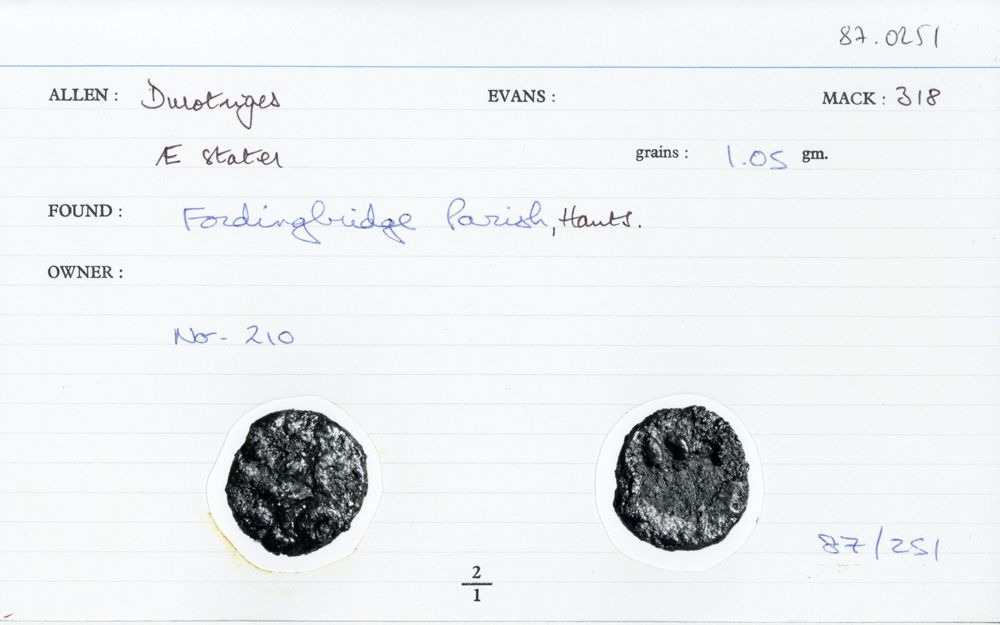 87.0251
ALLEN : Durotriges EVANS : MACK : 318
Æ stater grains : 1.05 gm.
FOUND : Fordingbridge Parish, Hants.
OWNER :
No- 210
87/251
2
1